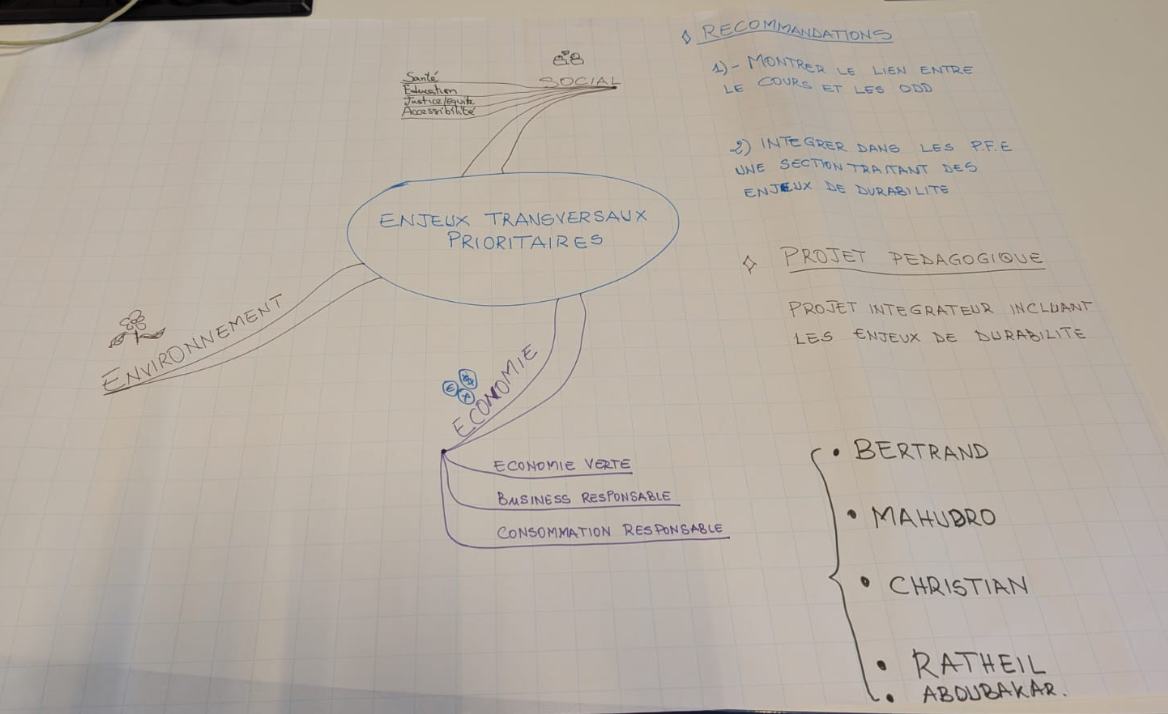 SOCIAL
Santé
Education
Justice/équité
Accessibilité
ENJEUX TRANSVERSAUX
PRIORITAIRES
ENVIRONNEMENT
ECONOMIE
ECONOMIE VERTE
BUSINESS RESPONSABLE
CONSOMMATION RESPONSABLE
RECOMMANDATIONS
1)- MONTRER LE LIEN ENTRE
LE COURS ET LES ODD
2) INTEGRER DANS LES P.F.E
UNE SECTION TRAITANT DES
ENJEUX DE DURABILITE
PROJET PEDAGOGIQUE
PROJET INTEGRATEUR INCLUANT
LES ENJEUX DE DURABILITE
• BERTRAND
• MAHUDRO
• CHRISTIAN
• RATHEIL
• ABOUBAKAR.